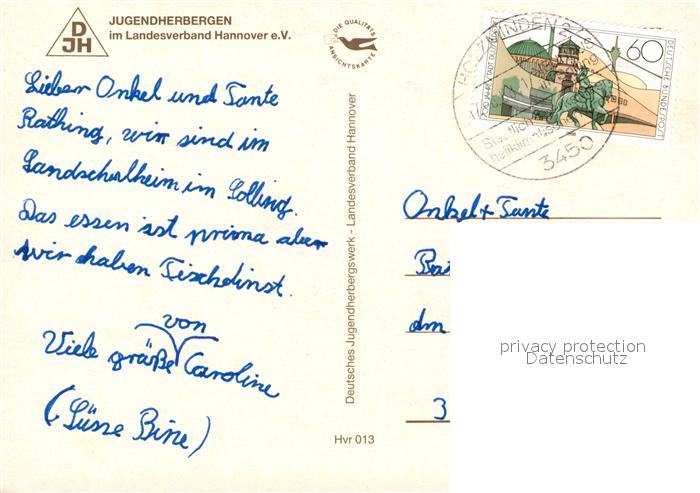 DJH
JUGENDHERBERGEN
im Landesverband Hannover e.V.
DIE QUALITÄTS
ANSICHTSKARTE
HOLZMINDEN 2
3450
60
DEUTSCHE BUNDESPOST
Lieber Onkel und Tante
Rathing, wir sind im
Landschulheim im Solling.
Das essen ist prima aber
wir haben Tischdinst.
Viele größe von Caroline
(Süsse Bine)
Deutsches Jugendherbergswerk - Landesverband Hannover
Hvr 013
Onkel + Tante
dm
3
privacy protection
Datenschutz